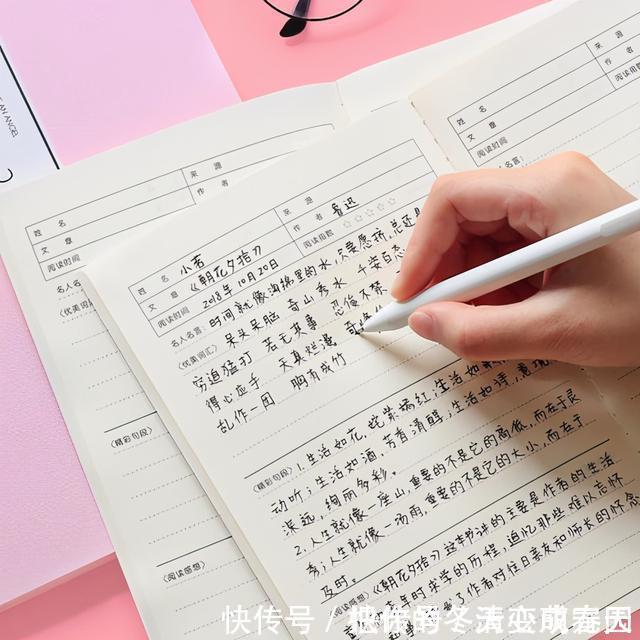 AN ANGEL
姓 名
来 源
文 章
作 者
阅读时间
阅读指数
名人名言
姓 名
来 源
文 章
作 者
阅读时间
阅读指数
《优美词汇》
《精彩句段》
《阅读感想》
姓 名 小茗
来 源
文 章 《朝花夕拾》
作 者 鲁迅
阅读时间 2018年10月20日
阅读指数 ☆☆☆☆☆
名人名言: 时间就像海绵里的水,只要愿挤,总还是
《优美词汇》 呆头呆脑 奇山秀水 千姿百态
穷追猛打 若无其事 忍俊不禁
得心应手 天真烂漫
乱作一团 胸有成竹
《精彩句段》 1.生活如花,姹紫嫣红,生活如
动听,生活如酒,芳香清醇,生活如诗,意境
深远,绚丽多彩。
2.人生就像一座山,重要的不是它的高低,而在于灵
秀;人生就像一场雨,重要的不是它的大小,而在于
及时。
《阅读感想》 《朝花夕拾》这本书讲的主要是作者的生活
年时求学的历程,追忆那些难以忘怀
了作者对往日亲友和师长的怀念
快传号 /